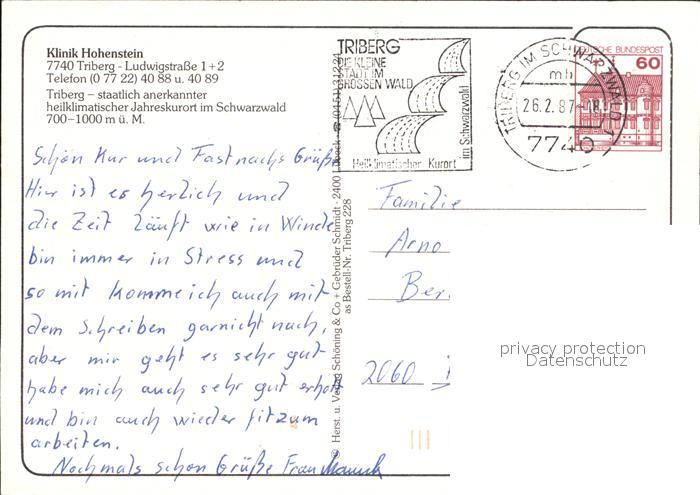 Klinik Hohenstein
7740 Triberg - Ludwigstraße 1+2
Telefon (0 77 22) 40 88 u. 40 89
Triberg – staatlich anerkannter
heilklimatischer Jahreskurort im Schwarzwald
700–1000 m ü. M.
TRIBERG
DIE KLEINE
STADT IM
GROSSEN WALD
Heilklimatischer Kurort
im Schwarzwald
TRIBERG IM SCHWARZWALD 1
mb
26.2.87-18
7740
DEUTSCHE BUNDESPOST
60
Schön Kur und Fastnachs Grüße
Hier ist es herlich und
die Zeit läuft wie in Winde
bin immer in Stress und
so mit komme ich auch mit
dem Schreiben garnicht nach,
aber mir geht es sehr gut
habe mich auch sehr gut erholt
und bin auch wieder fit zum
arbeiten.
Nochmals schon Grüße Frau
© Herst. u. Verlag Schöning & Co + Gebrüder Schmidt - 2400
as Bestell-Nr. Triberg 228
Familie
Arno
Ber
2060
privacy protection
Datenschutz